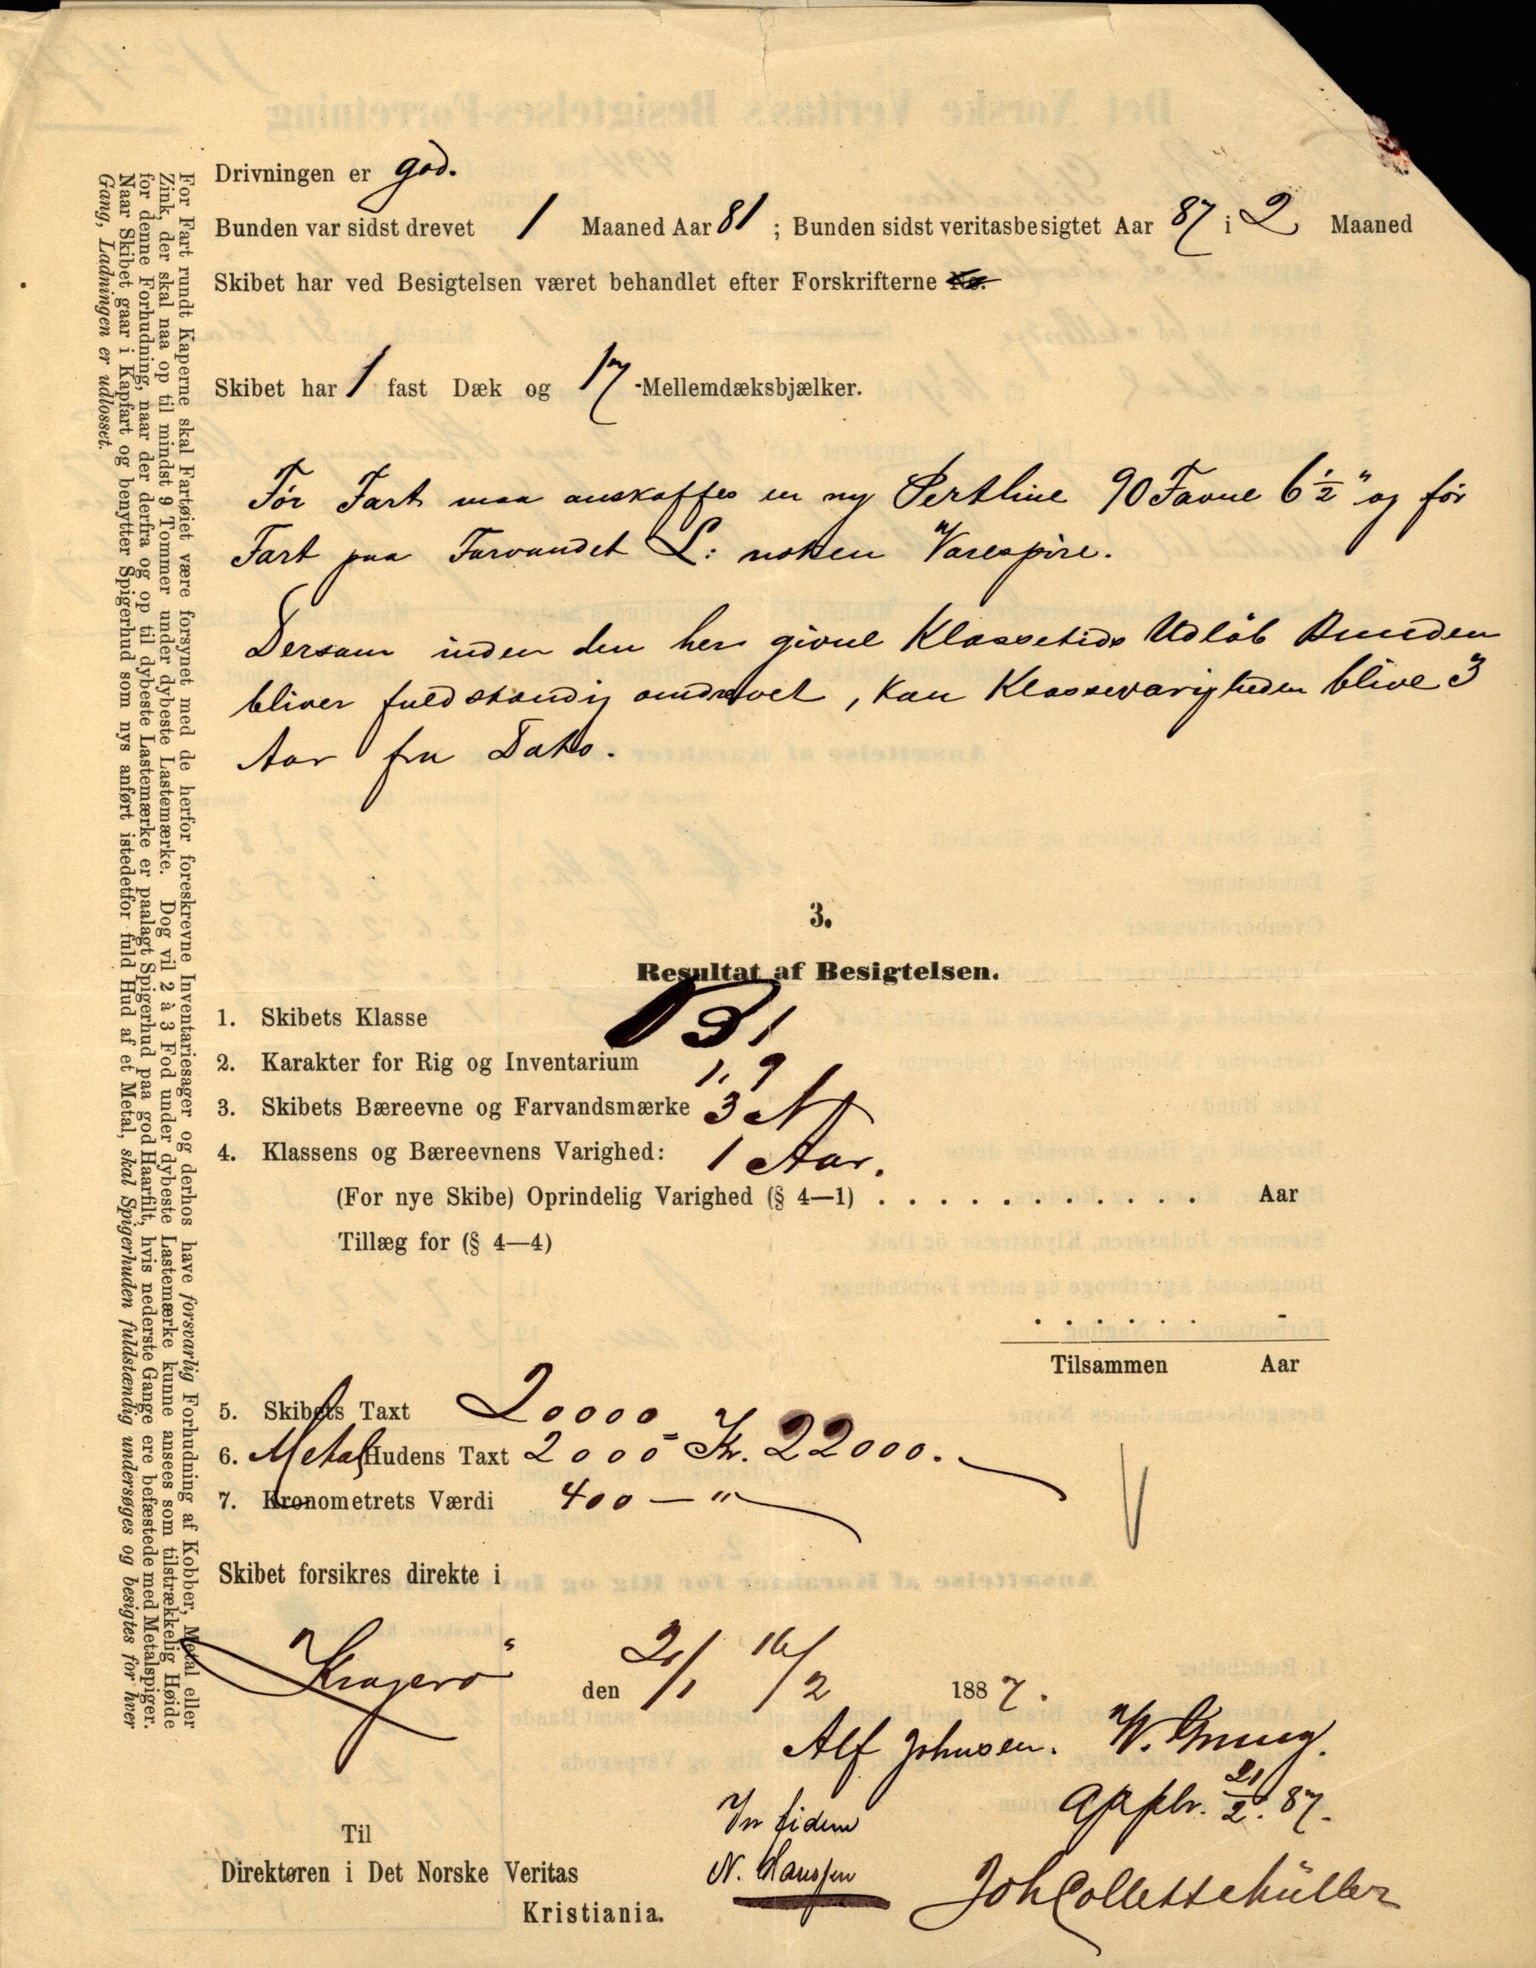 Drivningen er god.
Bunden var sidst drevet 1 Maaned Aar 81 ; Bunden sidst veritasbesigtet Aar 87 i 2 Maaned
Skibet har ved Besigtelsen været behandlet efter Forskrifterne No.
Skibet har 1 fast Dæk og 17 -Mellemdæksbjælker.
Før Fart maa anskaffes en ny Pertline 90 Favne 6 1/2" og før
Fart paa Farvandet L: nok en Varespire.
Dersom inden den her givne Klassetids Udløb Bunden
bliver fuldstændig omdrevet, kan Klassevarigheden blive 3
Aar fra Dato.
3.
Resultat af Besigtelsen.
1. Skibets Klasse B 1
2. Karakter for Rig og Inventarium 1,9
3. Skibets Bæreevne og Farvandsmærke 3 N
4. Klassens og Bæreevnens Varighed: 1 Aar.
(For nye Skibe) Oprindelig Varighed (§ 4—1) . . . . . . . . . . . . Aar
Tillæg for (§ 4—4)
. . . . . . . -
Tilsammen Aar
5. Skibets Taxt 20000
6. Metal Hudens Taxt 2000 = Kr. 22000.
7. Kronometrets Værdi 400 — "
Skibet forsikres direkte i
Kragerø den 21/1 16/2 1887.
Alf Johnsen. W. Grung.
In fidem Appbr. 21/2. 87.
Til
Direktøren i Det Norske Veritas N. Hanssen Joh Collett Müller
Kristiania.
For Fart rundt Kaperne skal Fartøiet være forsynet med de herfor foreskrevne Inventariesager og derhos have forsvarlig Forhudning af Kobber, Metal eller
Zink, der skal naa op til mindst 9 Tommer under dybeste Lastemærke. Dog vil 2 à 3 Fod under dybeste Lastemærke kunne ansees som tilstrækkelig Høide
for denne Forhudning, naar der derfra og op til dybeste Lastemærke er paalagt Spigerhud paa god Haarfilt, hvis nederste Gange ere befæstede med Metalspiger.
Naar Skibet gaar i Kapfart og benytter Spigerhud som nys anført istedetfor fuld Hud af et Metal, skal Spigerhuden fuldstændig undersøges og besigtes for hver
Gang, Ladningen er udlosset.